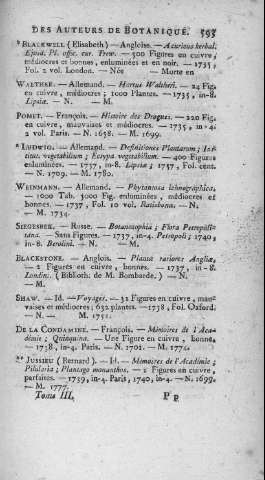 DES AUTEURS DE BOTANIQUE. 593
* BLACKWELL (Elisabeth) — Angloise. — A curious herbal;
Ejusd. Pl. offic. cur. Trew. — 500 Figures en cuivre,
médiocres et bonnes, enluminées et en noir. — 1735,
Fol. 2 vol. London. — Née — Morte en
WALTHER. — Allemand. — Hortus Waltheri. — 24 Fig.
en cuivre, médiocres; 1000 Plantes. — 1735, in-8.
Lipsiæ. — N. — M.
POMET. — François. — Histoire des Drogues. — 220 Fig.
en cuivre, mauvaises et médiocres. — 1735, in-4.
2 vol. Paris. — N. 1658. — M. 1699.
* LUDWIG. — Allemand. — Definitiones Plantarum;
vegetabilium; Ectypa vegetabilium. — 400 Figures
enluminées. — 1737, in-8. Lipsiæ; 1757, Fol. cent.
— N. 1709. — M. 1780.
WEINMANN. — Allemand. — Phytantosa ichnographica.
— 1000 Tab. 3000 Fig. enluminées, médiocres et
bonnes. — 1737, Fol. 10 vol. Ratisbonæ. — N.
— M. 1734.
SIEGESBEK. — Russe. — Botanosophia; Flora Petropoli-
tana. — Sans Figures. — 1737, in-4. Petropoli; 1740,
in-8. Berolini. — N. — M.
BLACKSTONE. — Anglois. — Plantæ rariores Angliæ,
— 2 Figures en cuivre, bonnes. — 1737, in-8.
Londini. (Biblioth. de M. Bombarde.) — N.
— M.
SHAW. — Id. — Voyages. — 32 Figures en cuivre, mau-
vaises et médiocres; 632 plantes. — 1738, Fol. Oxford.
— N. — M. 1751.
DE LA CONDAMINE. — François. — Mémoires de l'Aca-
démie; Quinquina. — Une Figure en cuivre, bonne.
— 1738, in-4. Paris. — N. 1701. — M. 1774.
** JUSSIEU (Bernard). — Id. — Mémoires de l'Académie;
Pilularia; Plantago monanthos. — 2 Figures en cuivre,
parfaites. — 1739, in-4. Paris, 1740, in-4. — N. 1699.
— M. 1777.
Tome III. P p